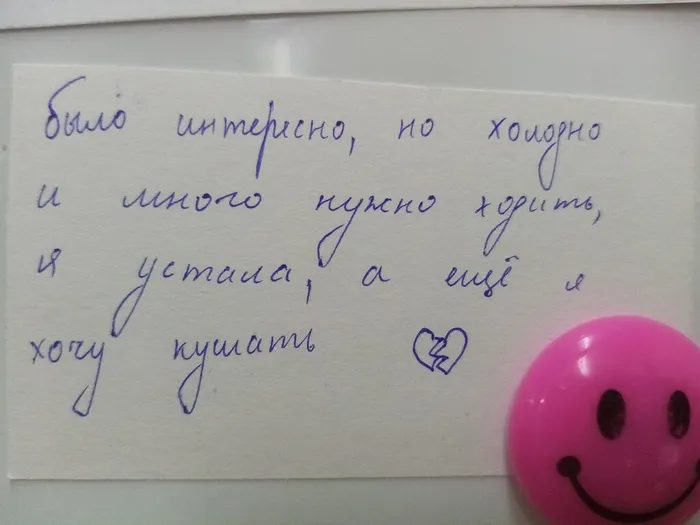 было интересно, но холодно
и много нужно ходить,
я устала, а ещё я
хочу кушать